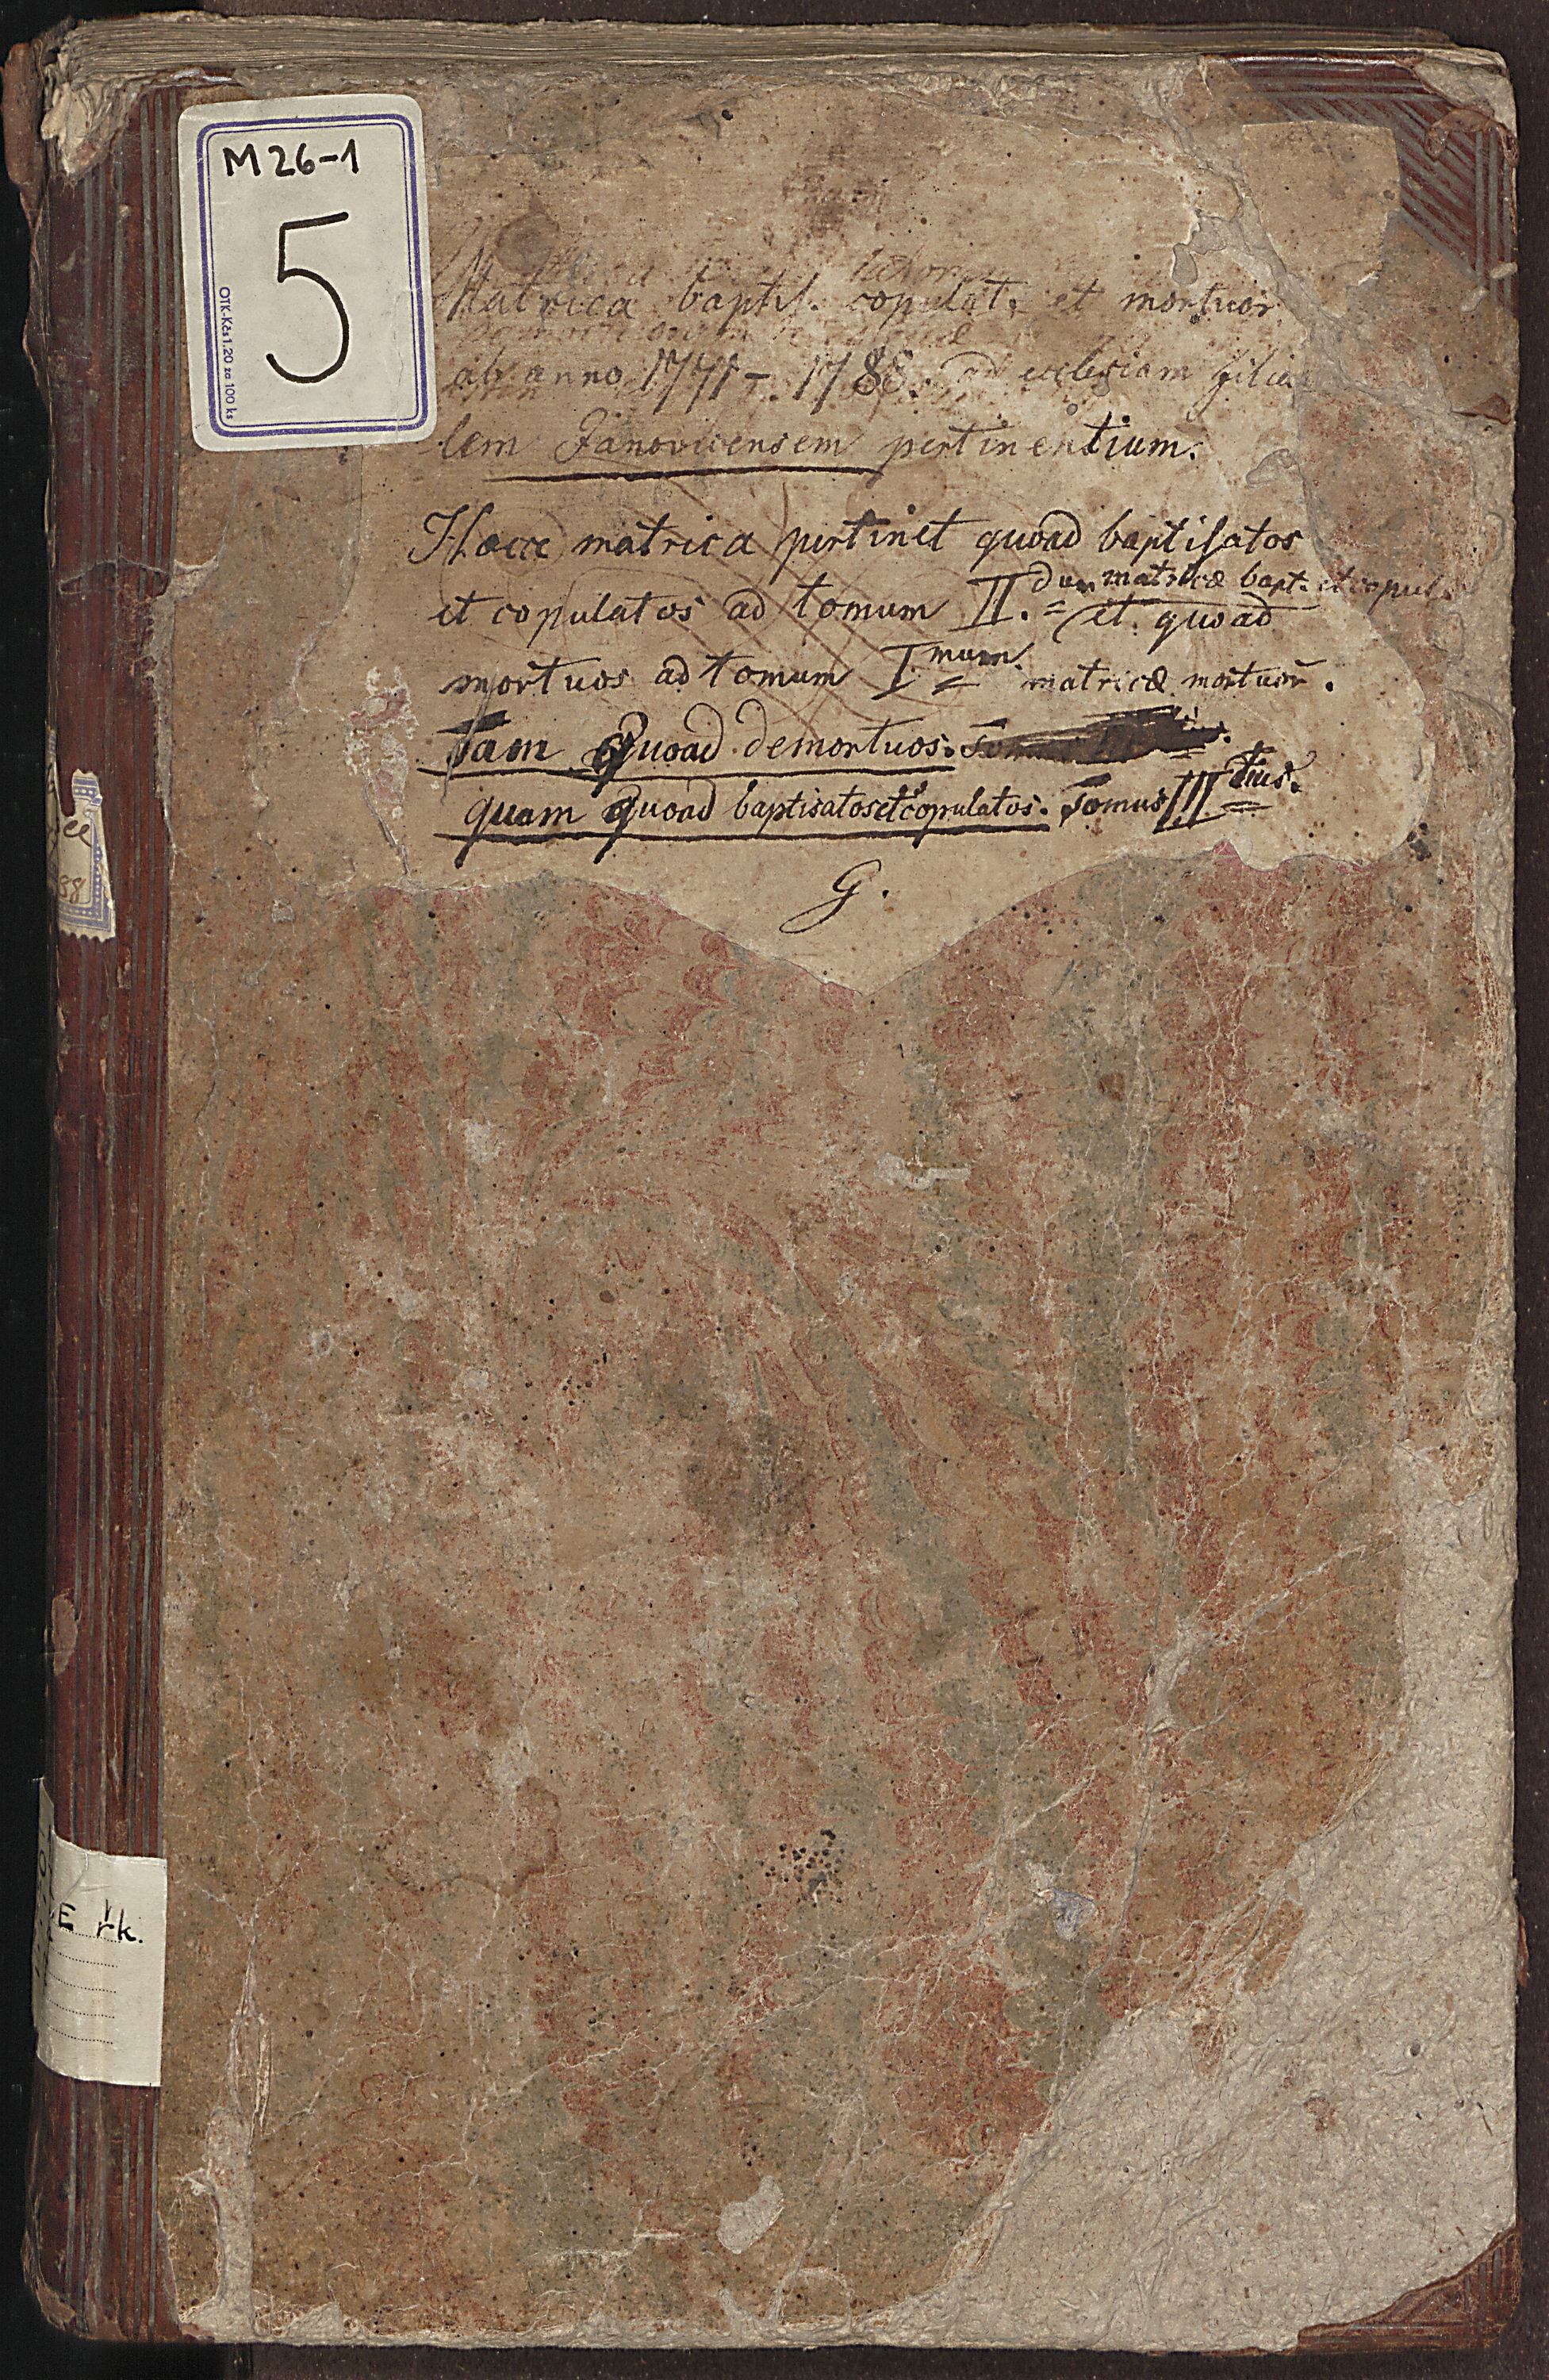 M 26-1
5
OTK-Kčs 1.20 za 100 ks
Matrica baptis. copulat. et mortuor
ab anno 1771 - 178 ad ecclesiam filia
lem Janovicensem pertinentium.
Hocce matrica pertinet quoad baptisatos
et copulatos ad tomum II. dum matricæ bapt. et copul.
et quoad
mortuos ad tomum I. mum. matricæ mortuor̄.
Tam Quoad demortuos.
quam Quoad baptisatos et copulatos. Tomus III tius.
G.
88
E rk.